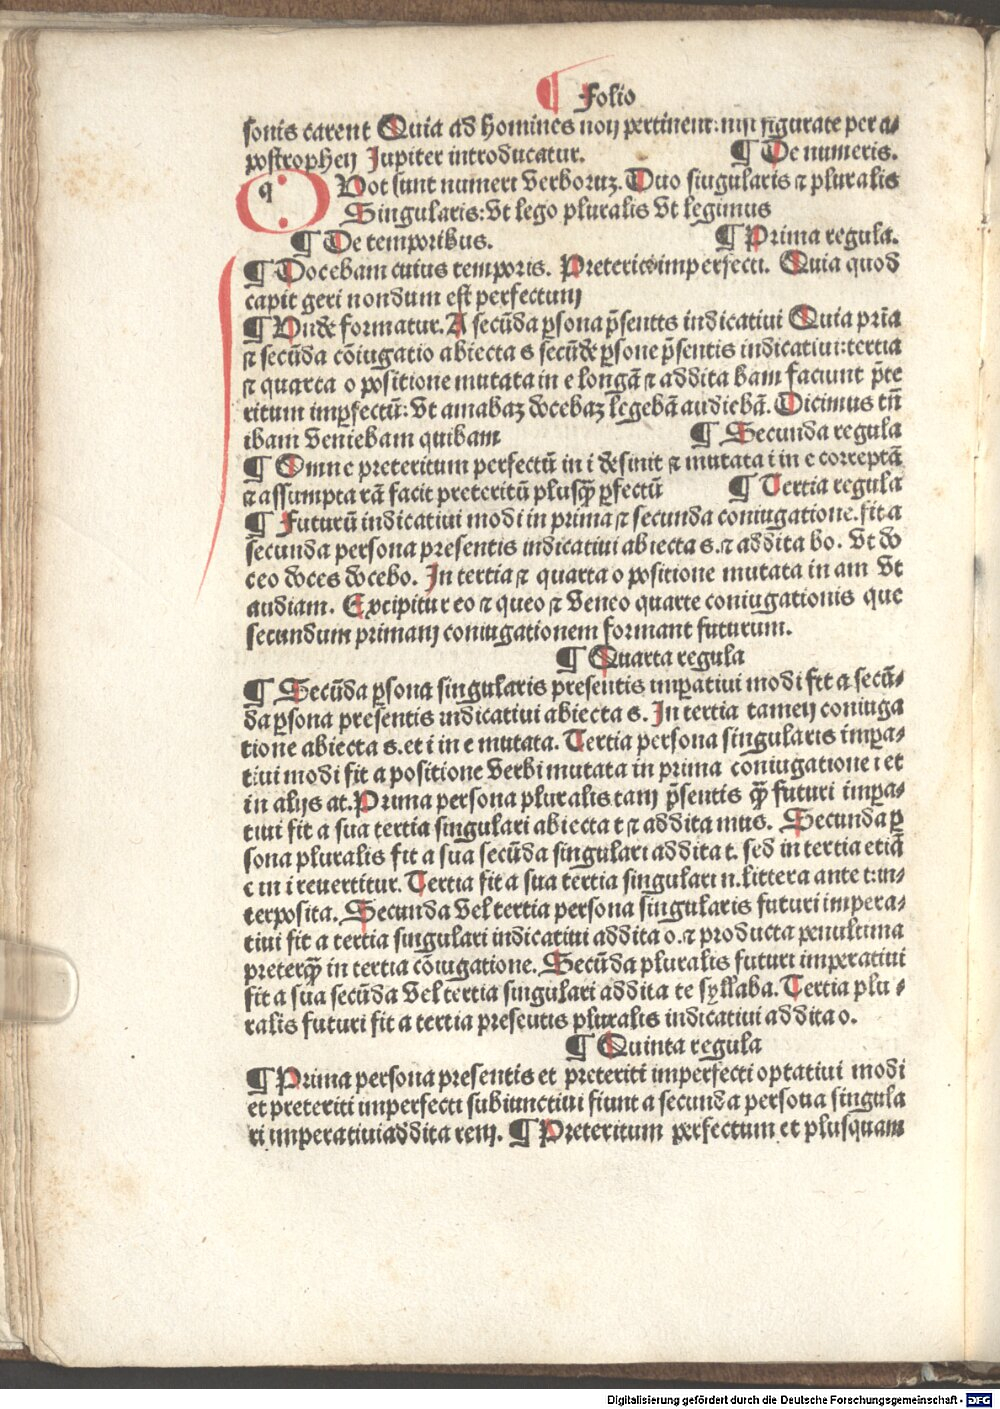 ¶ Folio
sonis carent Quia ad homines non pertinent: nisi figurate per a⸗
postrophen Jupiter introducatur. ¶ De numeris.
q Uot sunt numeri verboruꝫ. Duo singularis ⁊ pluralis
Singularis: vt lego pluralis vt legimus
¶ De temporibus. ¶ Prima regula.
¶ Docebam cuius temporis. Preteriti imperfecti. Quia quod
capit geri nondum est perfectum
¶ Unde formatur. A secūda ꝑsona p̄sentis indicatiui Quia pria
⁊ secūda cōiugatio abiecta s secūde ꝑsone p̄sentis indicatiui: tertia
⁊ quarta o positione mutata in e longā ⁊ addita bam faciunt p̄te
ritum imꝑfectū: vt amabaꝫ docebaꝫ legebā audiebā. Dicimus tn̄
ibam veniebam quibam ¶ Secunda regula
¶ Omne preteritum perfectū in i desinit ⁊ mutata i in e correptā
⁊ assumpta rā facit preteritū plusꝙ̄ ꝑfectū ¶ Tertia regula
¶ Futurū indicatiui modi in prima ⁊ secunda coniugatione. fit a
secunda persona presentis indicatiui abiecta s. ⁊ addita bo. vt do
ceo doces docebo. In tertia ⁊ quarta o positione mutata in am vt
audiam. Excipitur eo ⁊ queo ⁊ veneo quarte coniugationis que
secundum primam coniugationem formant futurum.
¶ Quarta regula
¶ Secūda ꝑsona singularis presentis imꝑatiui modi fit a secū⸗
da ꝑsona presentis indicatiui abiecta s. In tertia tamen coniuga
tione abiecta s. et i in e mutata. Tertia persona singularis imꝑa⸗
tiui modi fit a positione verbi mutata in prima coniugatione i et
in alijs at. Prima persona pluralis tam p̄sentis ꝙ̄ futuri imꝑa⸗
tiui fit a sua tertia singulari abiecta t ⁊ addita mus. Secunda ꝑ
sona pluralis fit a sua secūda singulari addita t. sed in tertia etiā
e in i reuertitur. Tertia fit a sua tertia singulari n. littera ante t: in⸗
terposita. Secunda vel tertia persona singularis futuri impera⸗
tiui fit a tertia singulari indicatiui addita o. ⁊ producta penultima
preterꝙ̄ in tertia cōiugatione. Secūda pluralis futuri imperatiui
fit a sua secūda vel tertia singulari addita te syllaba. Tertia plu⸗
ralis futuri fit a tertia presentis pluralis indicatiui addita o.
¶ Quinta regula
¶ Prima persona presentis et preteriti imperfecti optatiui modi
et preteriti imperfecti subiunctiui fiunt a secunda persona singula
ri imperatiui addita rem. ¶ Preteritum perfectum et plusquam
Digitalisierung gefördert durch die Deutsche Forschungsgemeinschaft - DFG